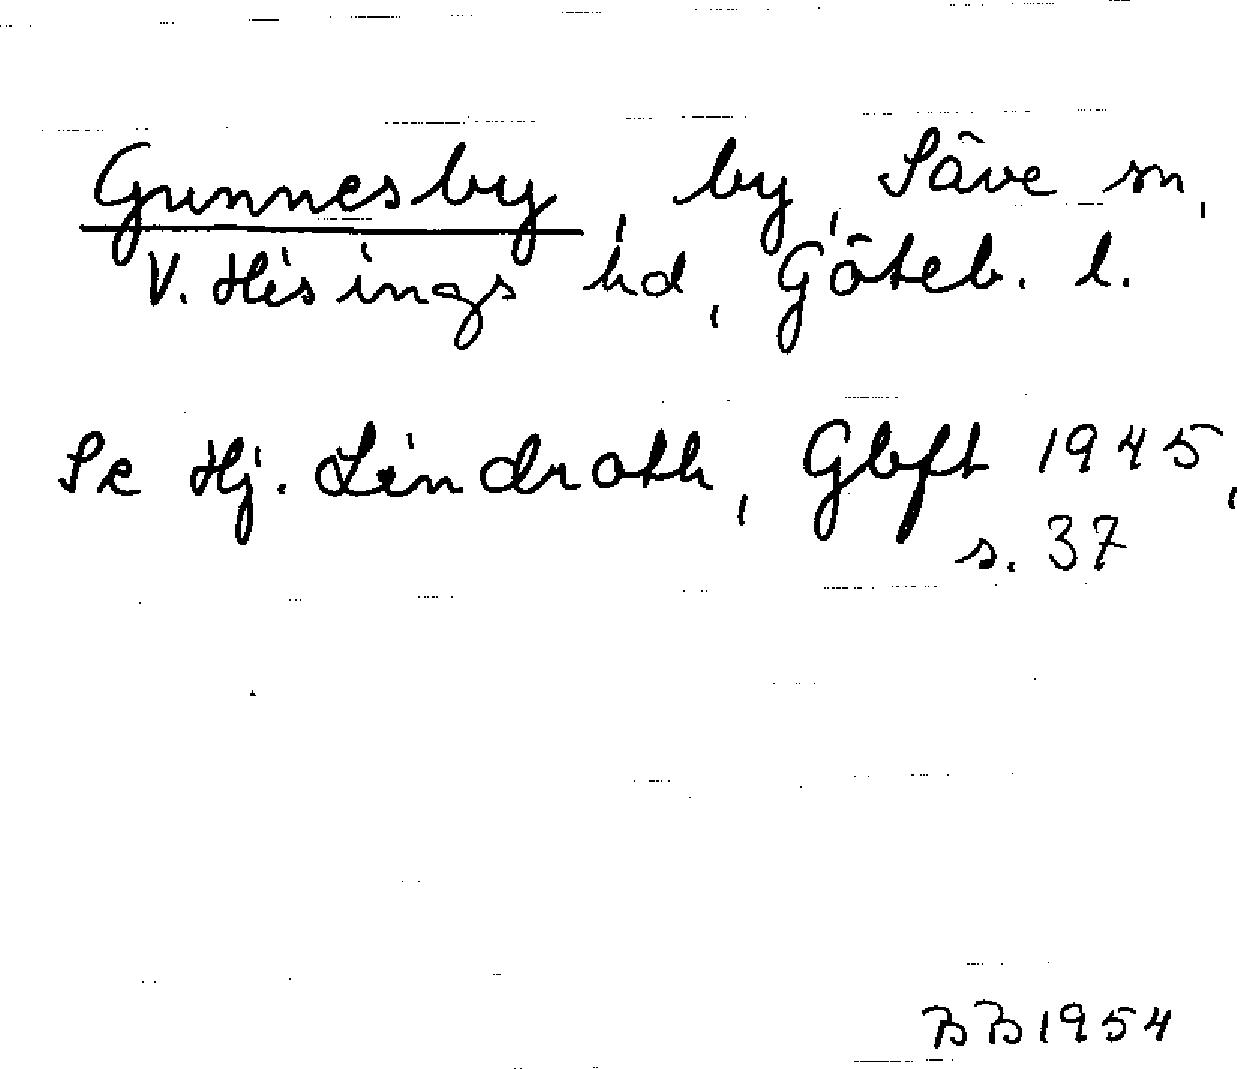 Gunnesby, by, Säve sn,
V. Hisings hd, Göteb. l.
Se Hj. Lindroth, Gbft 1945,
s. 37
BB 1954